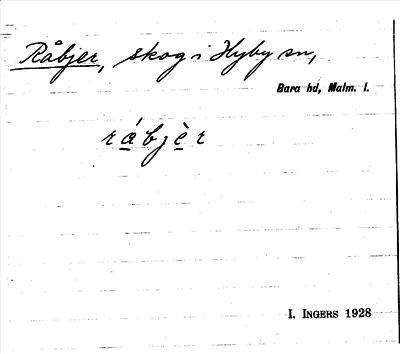 Råbjer, skog i Hyby sn,
Bara hd, Malm. l.
rábjèr
I. INGERS 1928